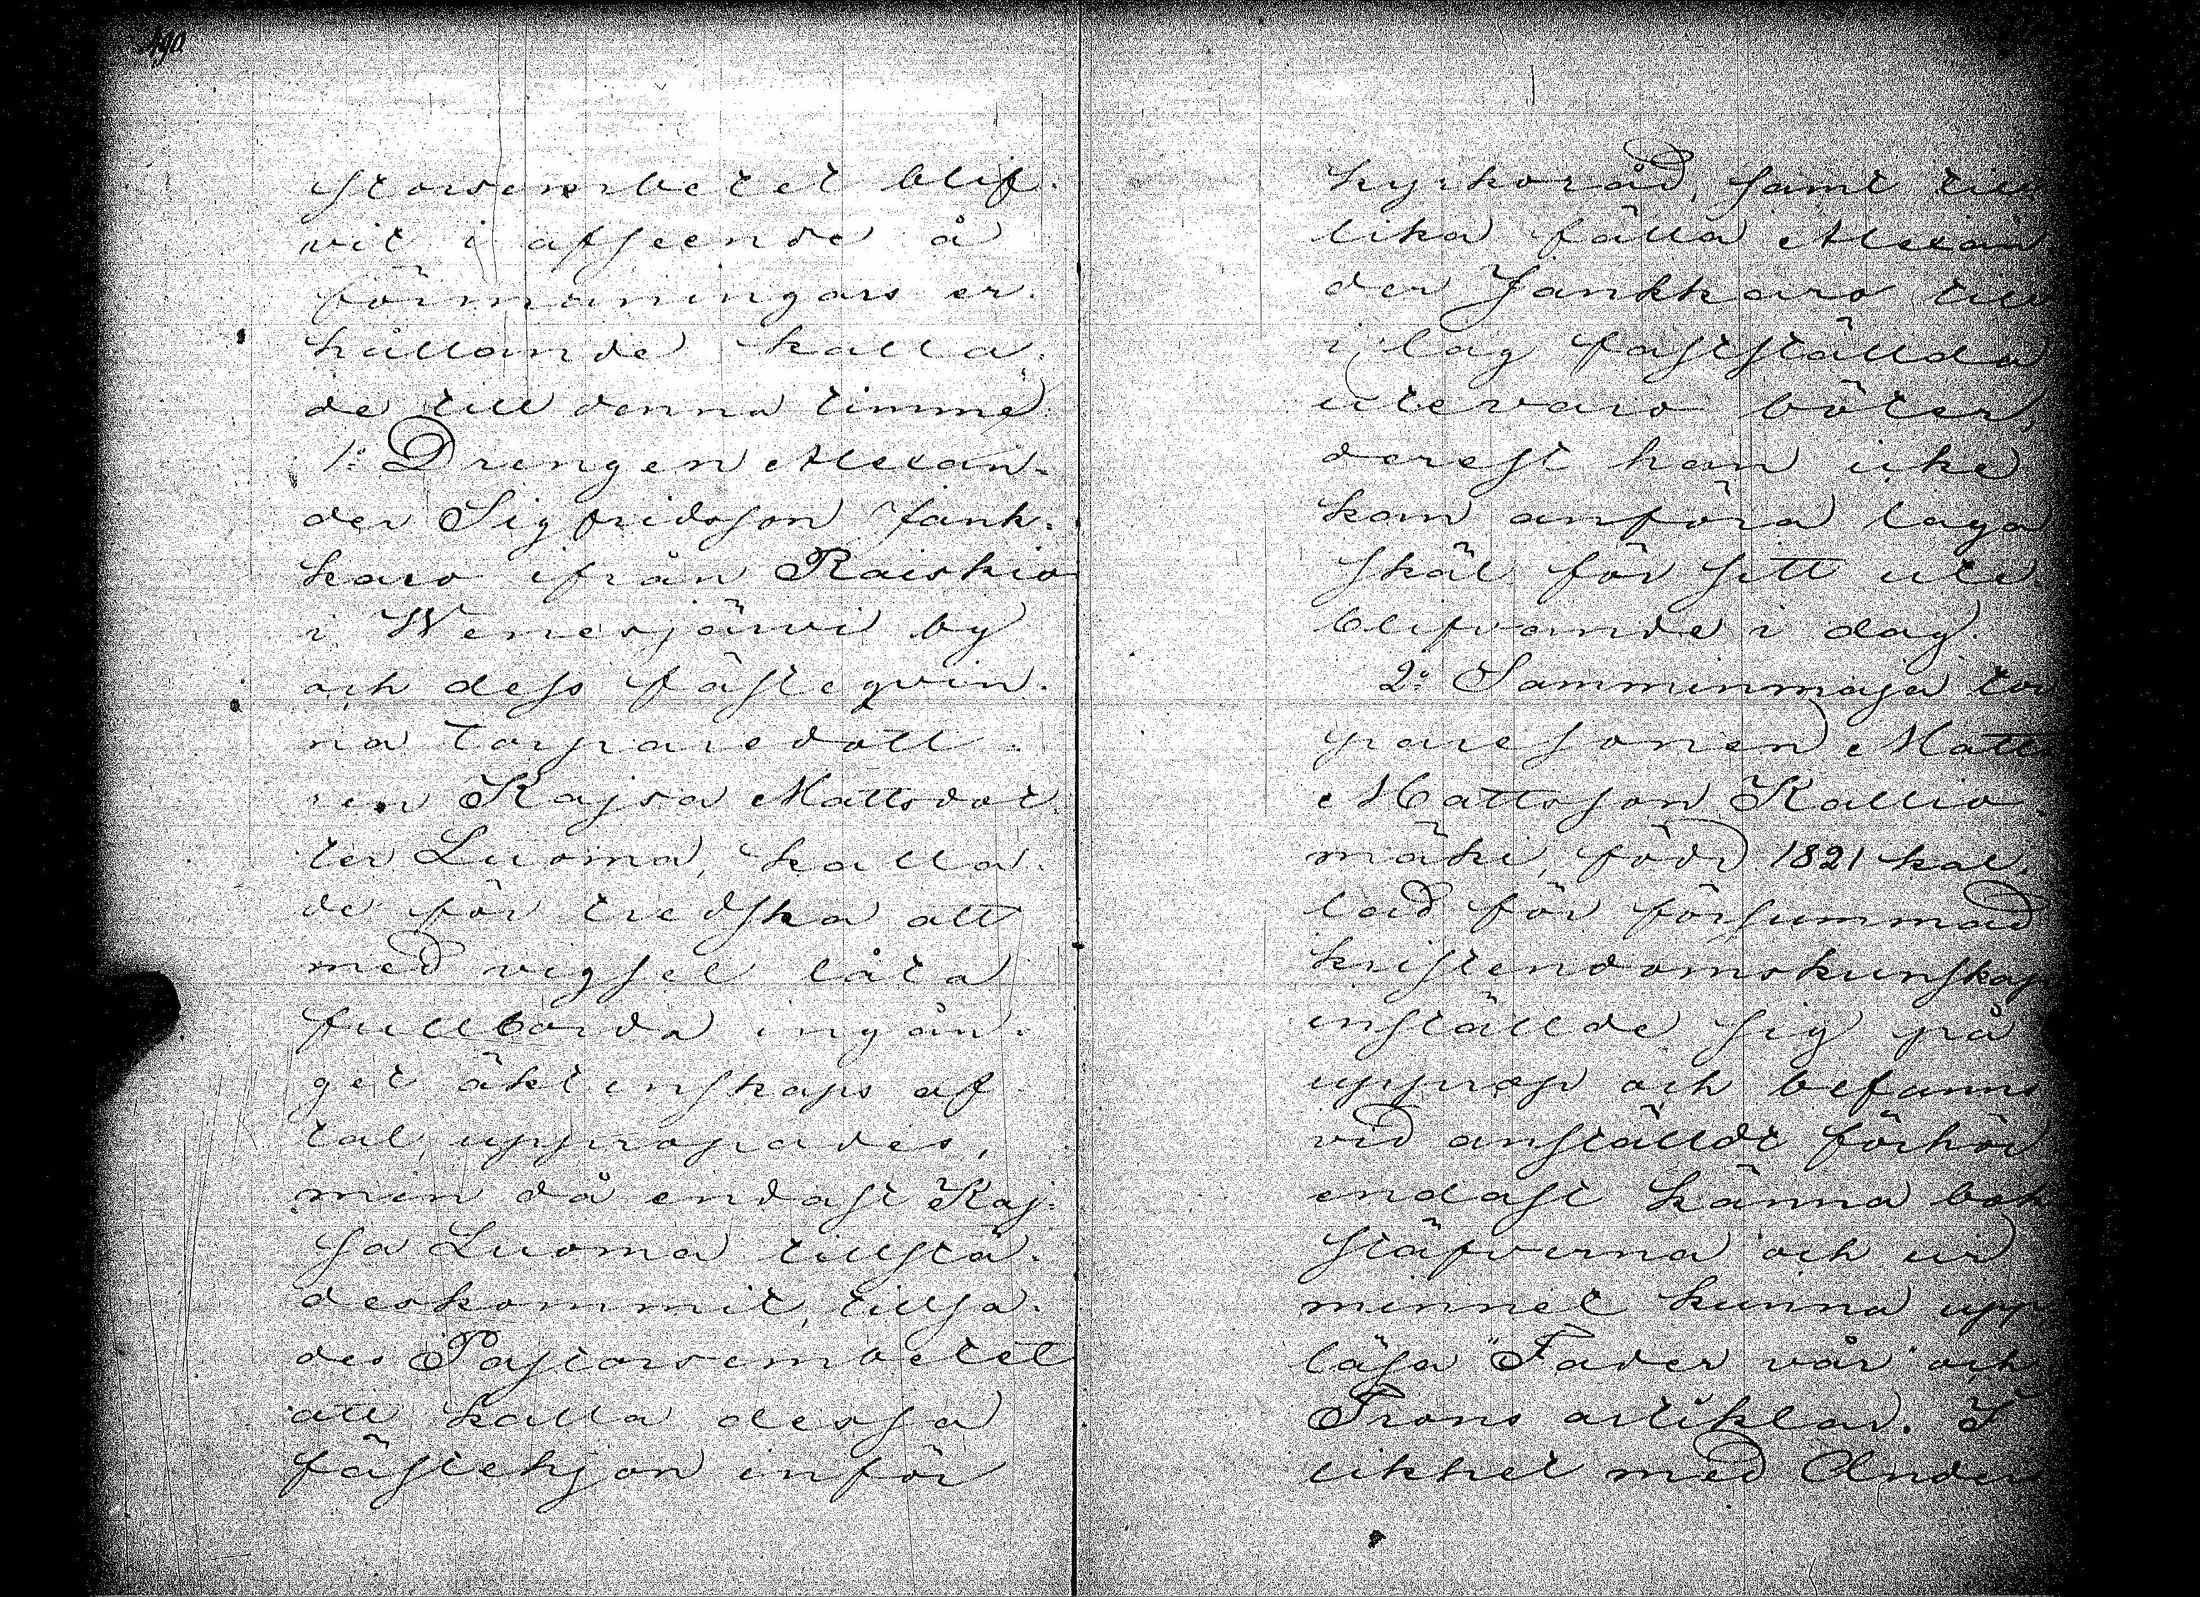 storsembetet blif-
vit i afseende å
förmaningars er-
hållande kalla-
de till denna timme
1:o Drengen Alexan-
der Sigfridsson Jank-
karo ifrån Raiskio
i Wenesjärvi by
och dess fästeqvin-
na torparedott-
ren Kajsa Mattsdot-
ter Luoma, kalla-
de för tredska att
med vigsel låta
fullborda ingån-
get äktenskaps af-
tal, uppropades,
men då endast Kaj-
sa Luoma tillstä-
deskommit, tillsa-
des Pastorsembetet
att kalla dessa
fästehjon inför
kyrkoråd, samt till
lika fälla Alexan
der Jankkaro till
i lag fastställda
utevaro böter,
derest han icke
kan anföra laga
skäl för sitt ute-
blifvande i dag.
2:o Samminmaja tor
paresonen Matts
Mattsson Kallio-
mäki, född 1821 kal-
lad för försummad
kristendomskunskap
inställde sig på
upprop och befanns
vid anställdt förhör
endast känna bok
stäfverna och ur
minnet kunna upp
läsa "Fader vår" och
Trons artiklar. I
likhet med Ander